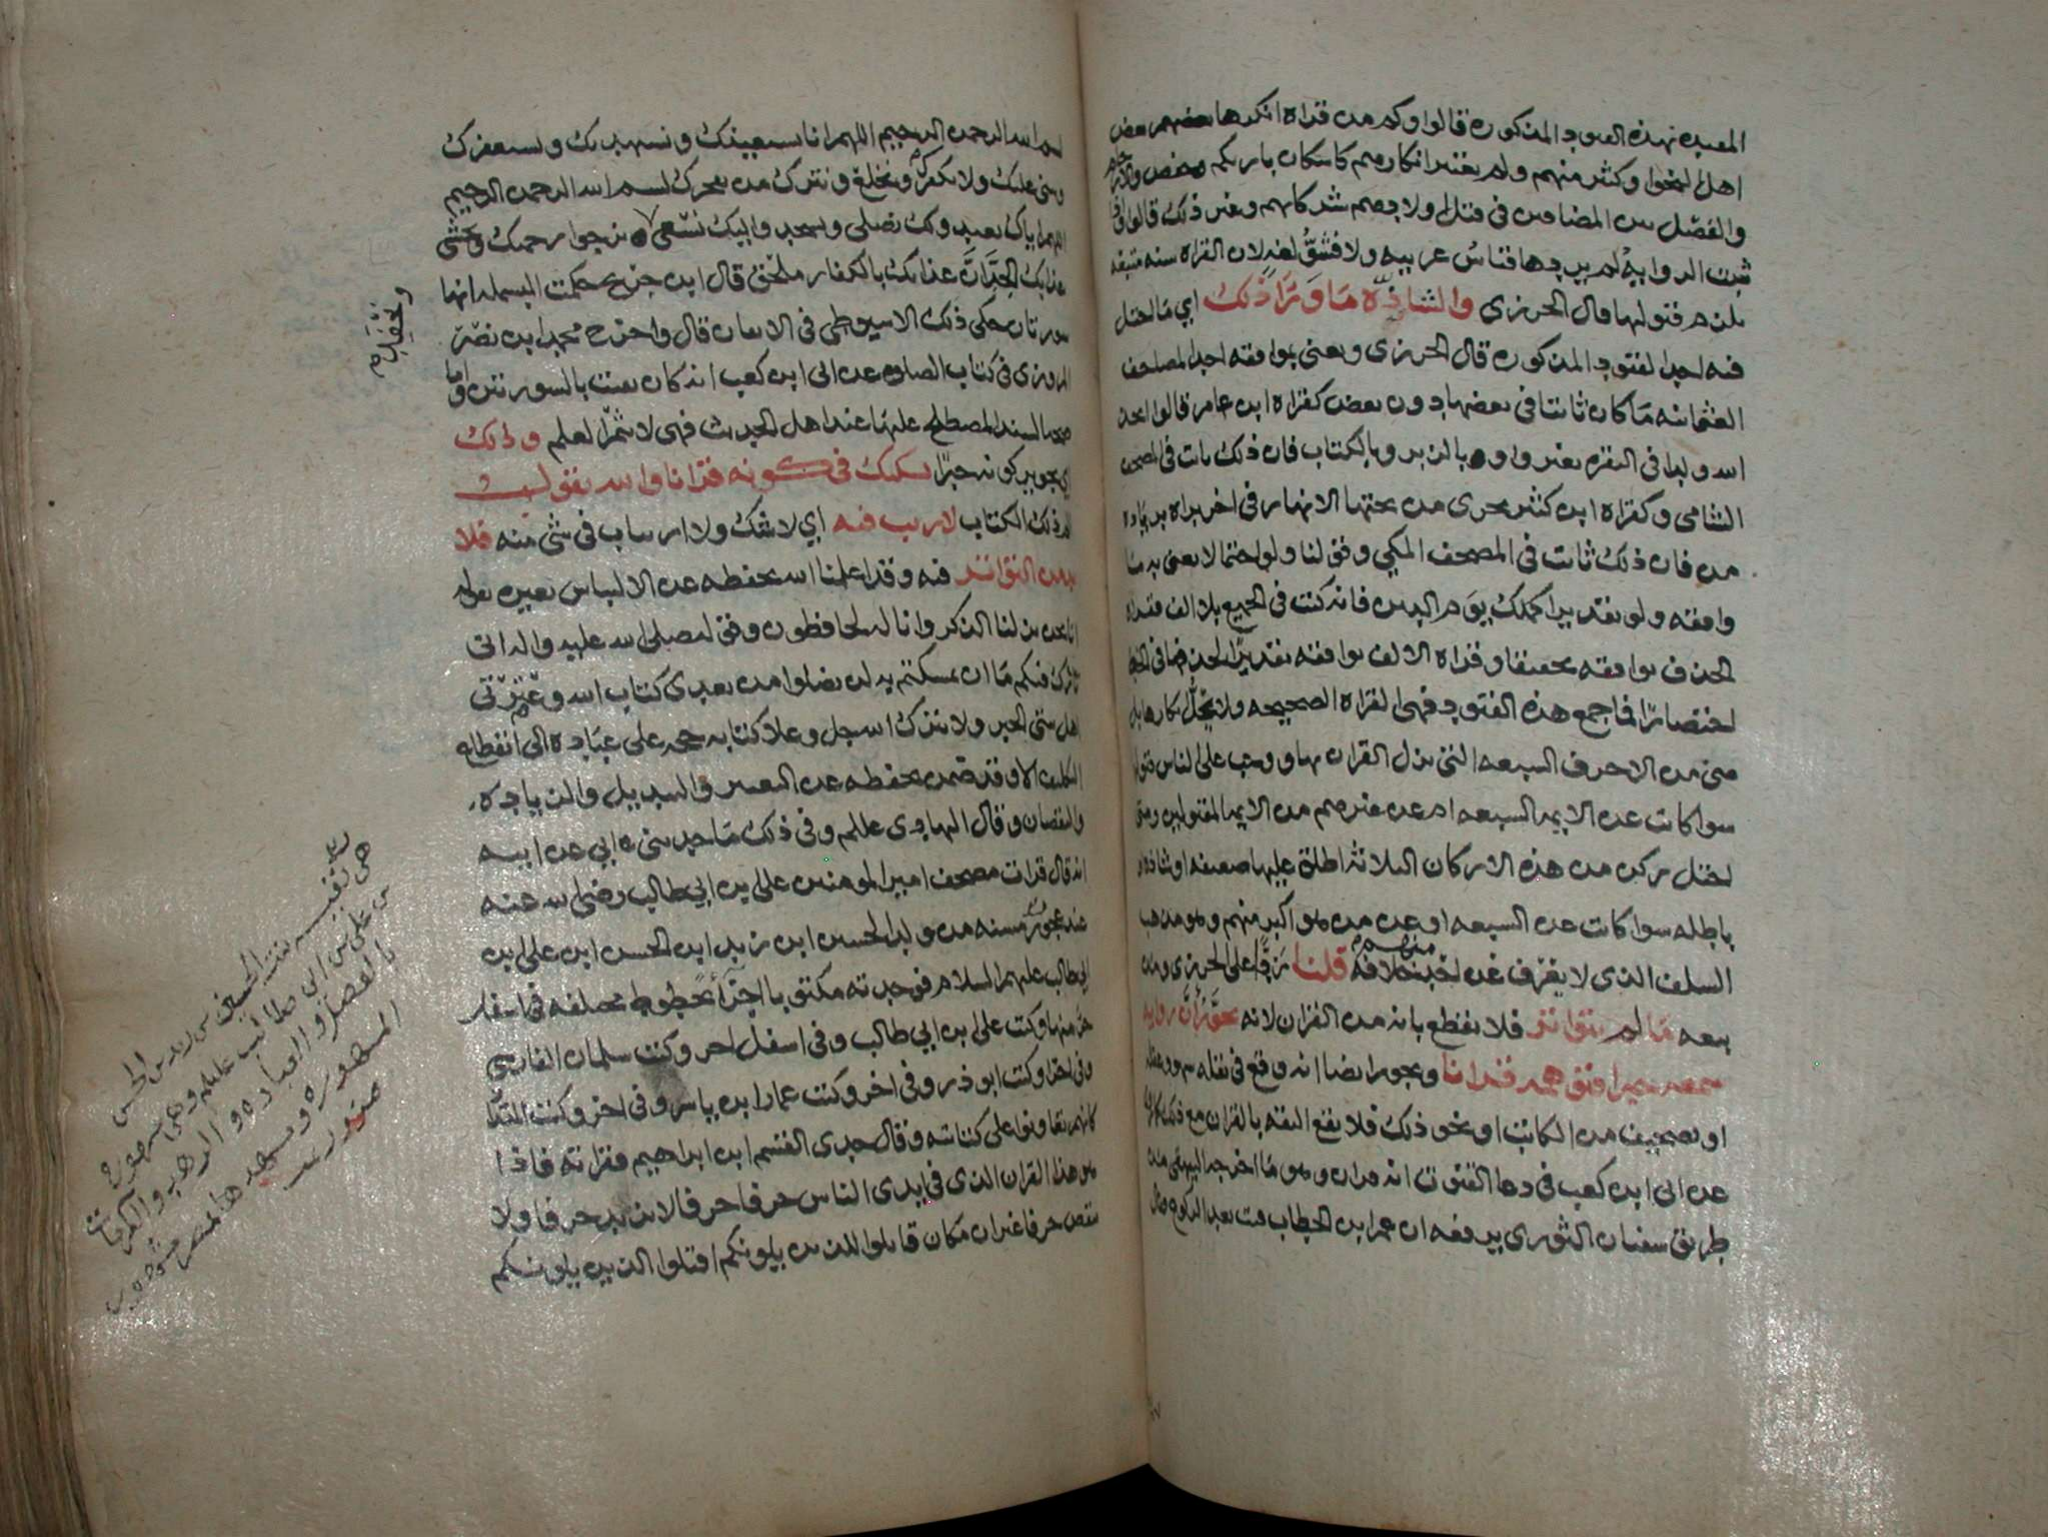 المقيده بهذه القيود المذكوره قالوا وكم من قراه انكرها بعض
اهل النحو او كثير منهم ولم يعتبر انكارهم كاسكان باريكم وخفض والارحام
والفصل بين المضافين في قتل اولادهم شركايهم وغير ذلك قالوا واذا
ثبتت الروايه لم يردها قياس عربيه ولا فشو لغه لان القراه سنه متبعه
يلزم قبولها قال الجزري والشاذه ما وراذلك اي ما اختل
فيه احد القيود المذكوره قال الجزري ونعني بموافقه احد المصاحف
العثمانيه ما كان ثابتا في بعضها دون بعض كقراه ابن عامر قالوا اتخذ
الله ولدا في البقره بغير واو وبالزبر وبالكتاب فان ذلك ثابت في المصحف
الشامي وكقراه ابن كثير تجري من تحتها الانهار في اخر براه بزياده
من فان ذلك ثابت في المصحف المكي وقولنا ولو احتمالا يعني به ما
وافقه ولو تقديرا كملك يوم الدين فانه كتب في الجميع بلا الف فقراه
الحذف توافقه تحقيقا وقراه الالف توافقه تقديرا لحذفها في الخط
اختصارا فما جمع هذه القيود فهي القراه الصحيحه ولا يحل انكارها بل
هي من الاحرف السبعه التي نزل القران بها ووجب على الناس قبولها
سوا كانت عن الايمه السبعه ام عن غيرهم من الايمه المقبولين ومتى
اختل ركن من هذه الاركان الثلاثه اطلق عليها ضعيفه او شاذه او
باطله سوا كانت عن السبعه او عن من هو اكبر منهم وهو مذهب
السلف الذي لا يعرف عن احد منهم خلافه قلنا ردا على الجزري ومن
تبعه ما لم يتواتر فلا نقطع بانه من القران لانه يجوز ان راويه
سمعه خبرا فتوهمه قرانا ويجوز ايضا انه وقع في نقله سهو وغفله
او تصحيف من الكاتب او نحو ذلك فلا تقع الثقه بالقران مع ذلك
عن ابي ابن كعب في دعا القنوت انه قران وهو ما اخرجه البيهقي من
طريق سفيان الثوري يرفعه ان عمر ابن الخطاب قنت بعد الركوع فقال
بسم الله الرحمن الرحيم اللهم انا نستعينك ونستهديك ونستغفرك
ونثني عليك ولا نكفرك ونخلع ونترك من يفجرك بسم الله الرحمن الرحيم
اللهم اياك نعبد ولك نصلي ونسجد واليك نسعى ونحفد نرجوا رحمتك ونخشى
عذابك الجد ان عذابك بالكفار ملحق قال ابن جريج حكمت البسمله انها
سورتان حكى ذلك الاسيوطي في الاتقان قال واخرج محمد ابن نصر
المروزي في كتاب الصلوه عن ابي ابن كعب انه كان يقنت بالسورتين واما
صحه السند المصطلح عليها عند اهل الحديث فهي لا تثمر العلم وذلك
اي تجويز كونه خبرا تشكيك في كونه قرانا والله يقول
الم ذلك الكتاب لا ريب فيه اي لا شك ولا ارتياب في شي منه فلا
بد من التواتر فيه وقد اعلمنا الله بحفظه عن الالتباس بغيره بقوله
انا نحن نزلنا الذكر وانا له لحافظون وقوله صلى الله عليه واله اني
تارك فيكم ما ان تمسكتم به لن تضلوا من بعدي كتاب الله وعترتي
اهل بيتي الخبر ولا يترك الله جل وعلا كتابه حجه على عباده الى انقطاع
التكليف الا وقد ضمن بحفظه عن التغيير والتبديل والزياده
والنقصان وقال الهادي عليلم وفي ذلك ما حدثني ابي عن ابيه
انه قال قرات مصحف امير المومنين علي ابن ابي طالب رضي الله عنه
عند عجوز مسنه من ولد الحسين ابن زيد ابن الحسن ابن علي ابن
ابي طالب عليهم السلام فوجدته مكتوبا اجزا بخطوط مختلفه في اسفل
جز منها وكتب علي ابن ابي طالب وفي اسفل اخر وكتب سلمان الفارسي
وفي اخر وكتب ابو ذر وفي اخر وكتب عمار ابن ياسر وفي اخر وكتب المقداد
كانهم تعاونوا على كتابته وقال جدي القسم ابن ابراهيم فقراته فاذا
هو هذا القران الذي في ايدي الناس حرفا حرفا لا يزيد حرفا ولا
ينقص حرفا غير ان مكان قاتلوا الذين يلونكم اقتلوا الذين يلونكم
ونحفد
هي نفيسه بنت الحسين بن زيد بن الحسن
بن علي بن ابي طالب عليلم وهي مشهوره
بالفضل والعباده والزهد والكرامات
المشهوره ومشهدها بمصر مشهور